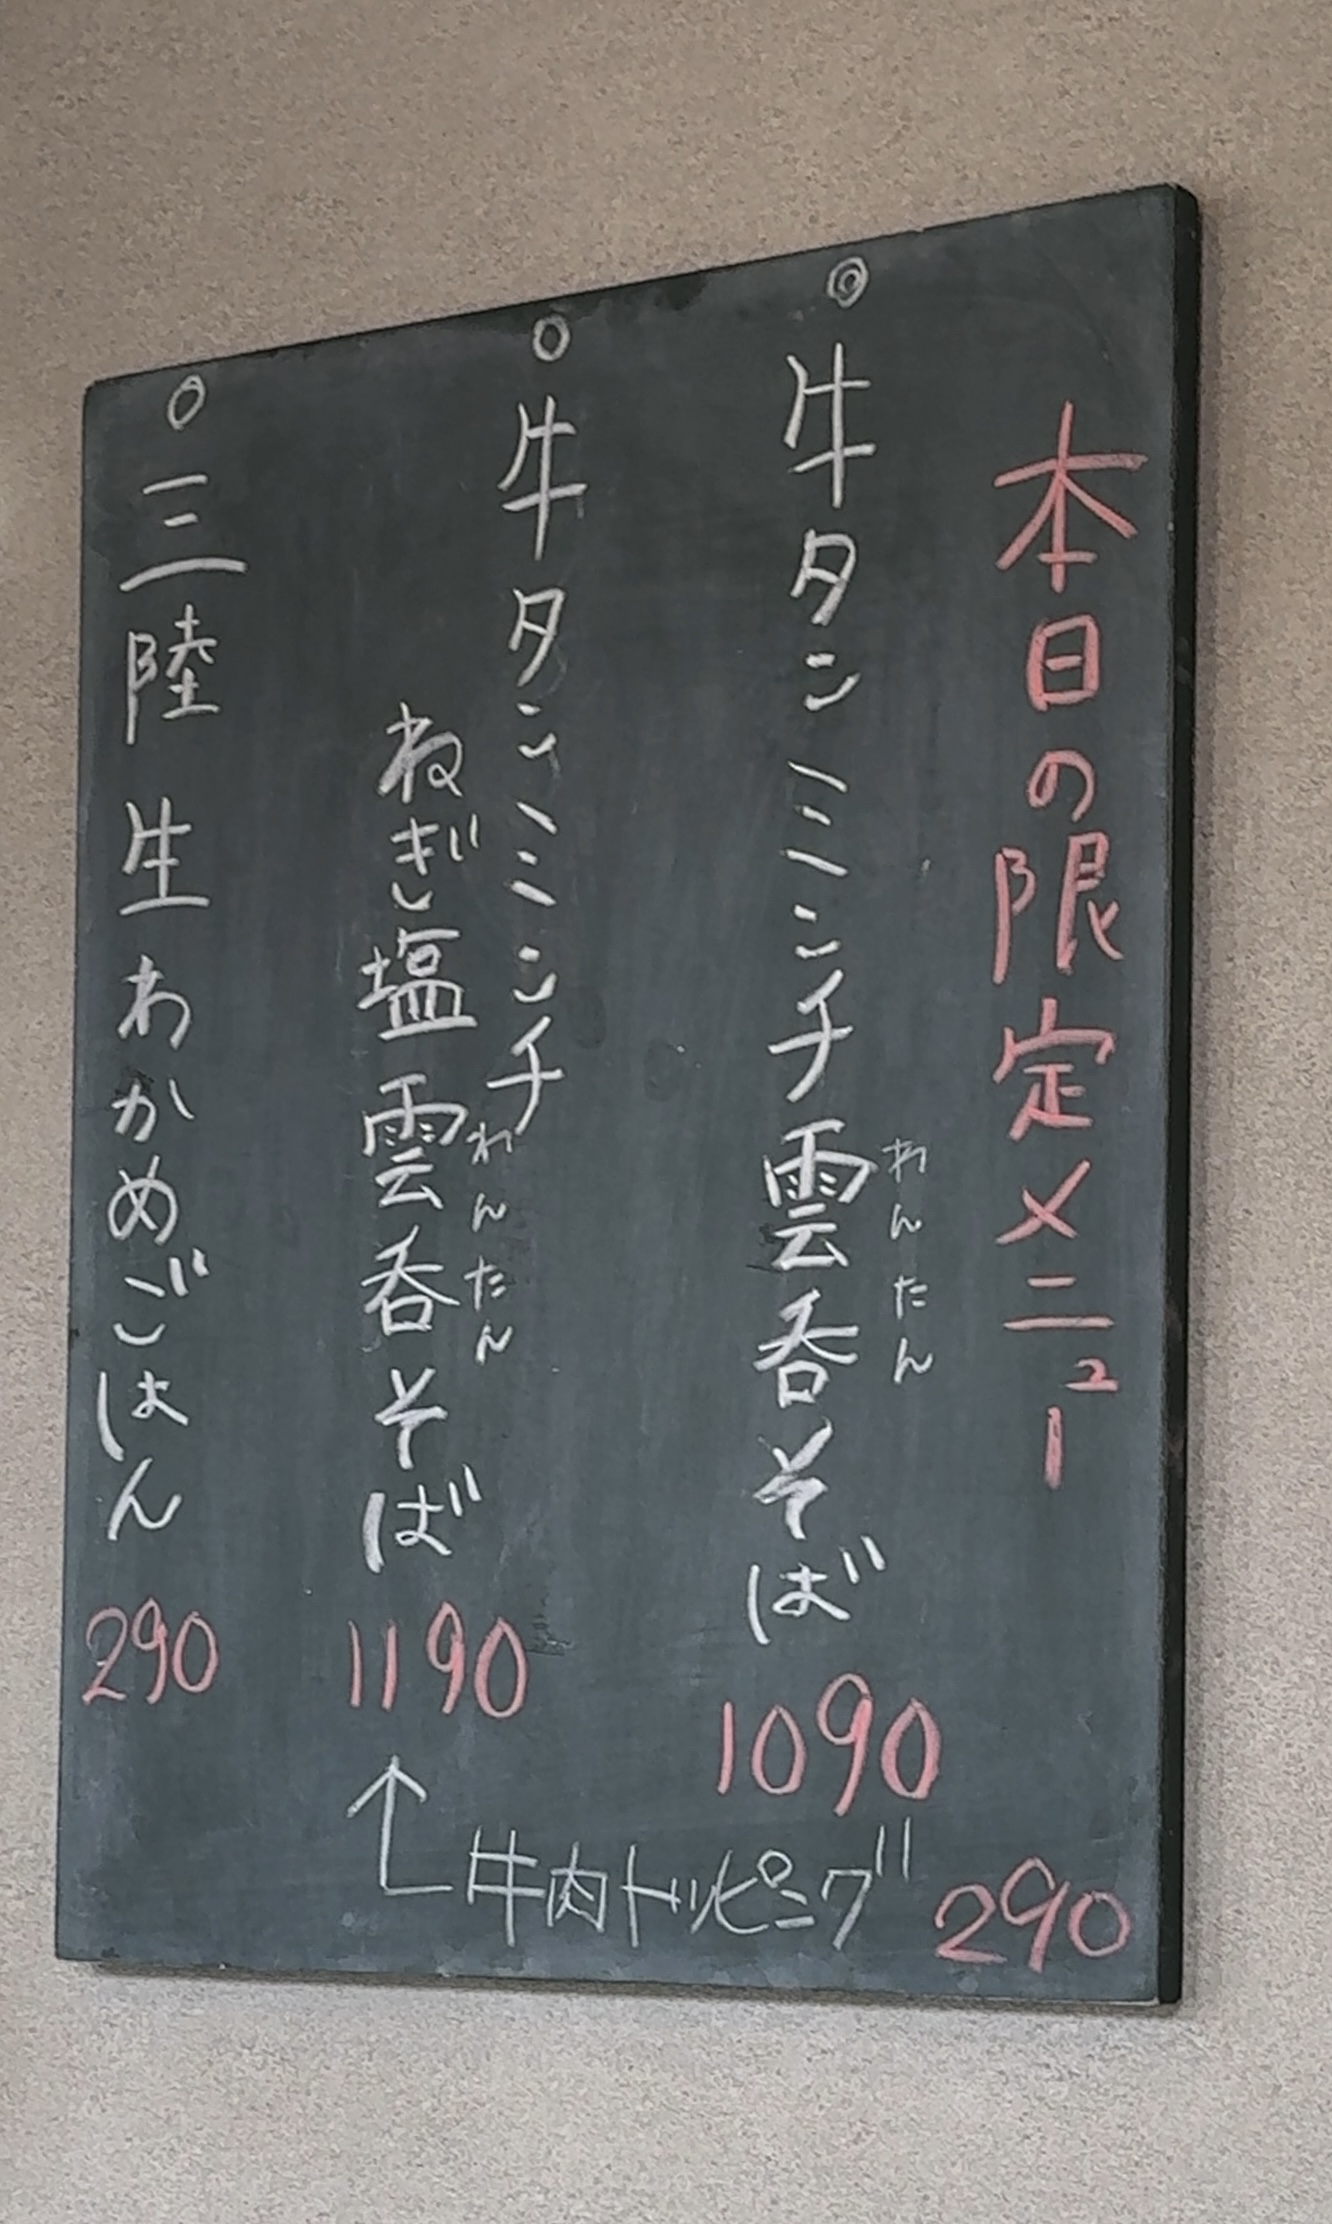 本日の限定メニュー
◎牛タンミンチ雲呑そば 1090
わんたん
○牛タンミンチ
ねぎ塩雲呑そば 1190
わんたん
↑牛肉トッピング 290
○三陸生わかめごはん 290